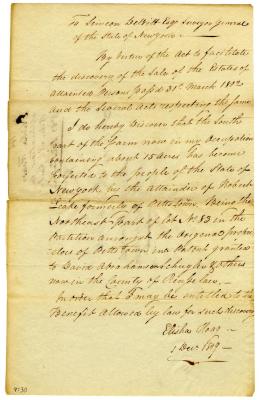 To Simeon DeWitt Esqr Surveyor General
of the State of New york
By virtue of the Act to facilitate
the discovery of the Sales of the Estates of
Attainted Persons passd 31st March 1802
and the Several Acts respecting the Same
I do hereby Discover that the South
part of the farm now in my Occupation
containing about 15 acres has become
forfeited to the people of the State of
New york by the Attainder of Robert
Leake formerly of Pitts Town, Being the
Northeast part of Lot No 83 in the
Partition amongst the original propri
etors of Pitts Town in a Patent granted
to David Abraham Schuyler & others
now in the County of Rensselaer
In order that I may be entitled to the
Benefit Allowed by law for such discovery
Elisha
1 Decr